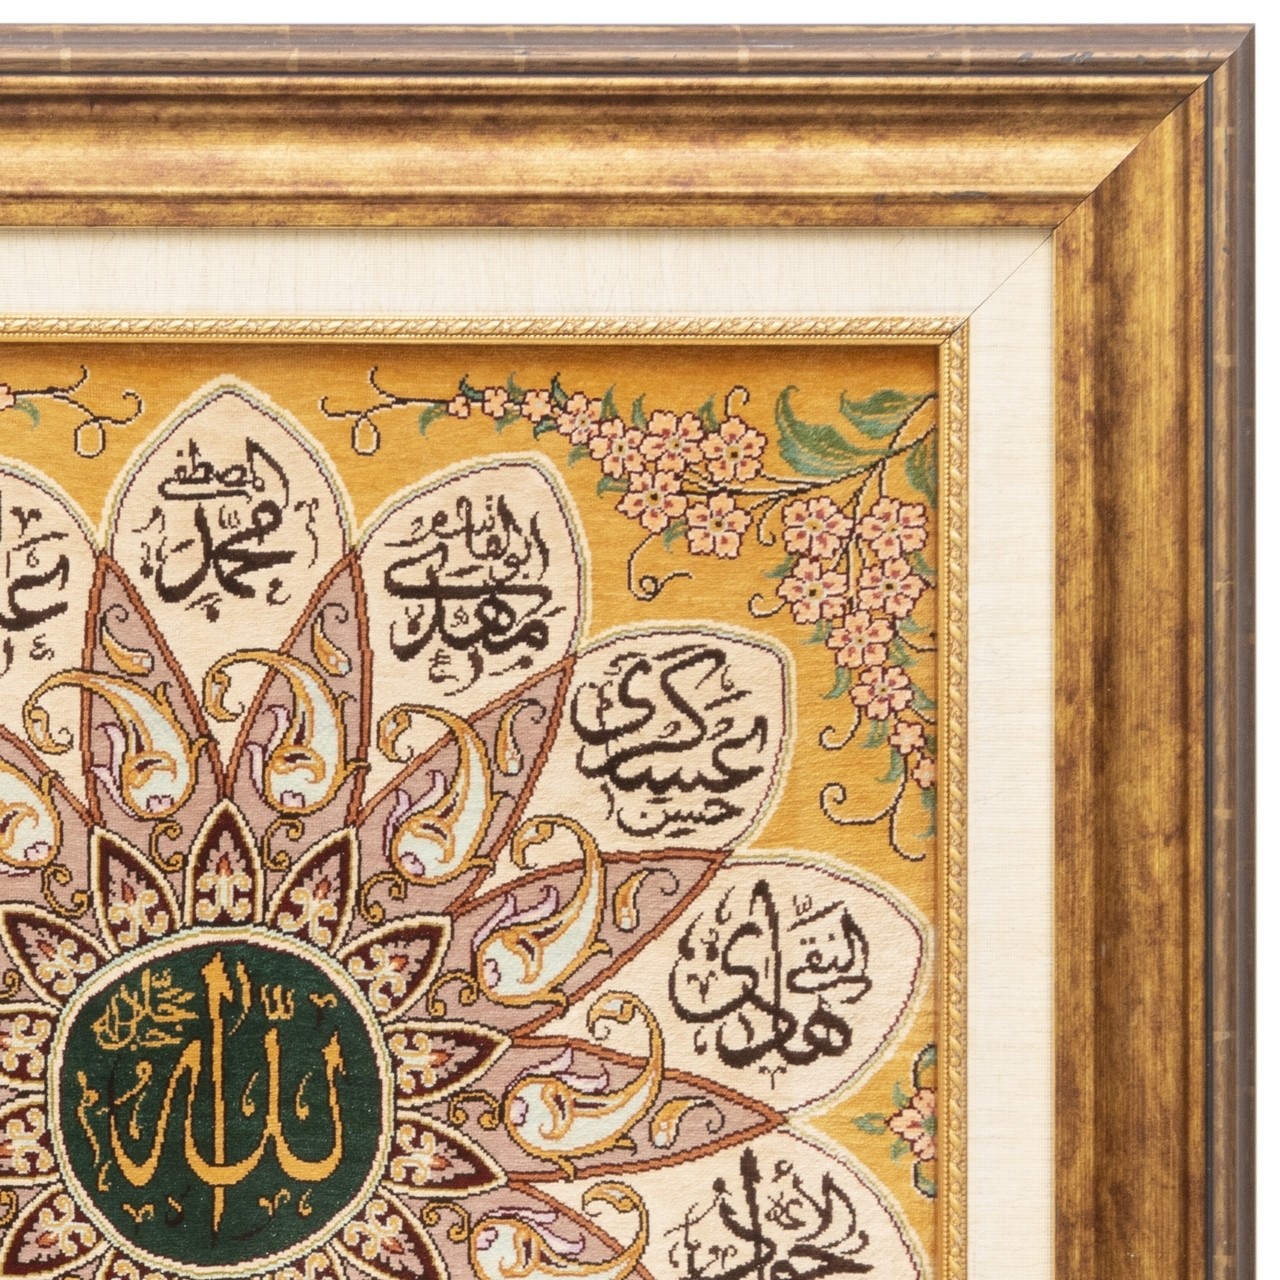 المصطفی
محمد
ابوالقاسم
مهدی
عسکری
حسن
النقی
هادی
جواد
الله
جل جلاله